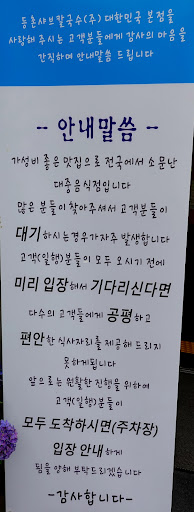 등촌샤브칼국수(주) 대한민국 본점을
사랑해 주시는 고객분들에게 감사의 마음을
간직하며 안내말씀 드립니다
-- 안내말씀 --
가성비 좋은 맛집으로 전국에서 소문난
대중음식점입니다
많은 분들이 찾아주셔서 고객분들이
대기하시는경우가자주 발생합니다
고객(일행)분들이 모두 오시기 전에
미리 입장해서 기다리신다면
다수의 고객들에게 공평하고
편안한 식사자리를 제공해 드리지
못하게됩니다
앞으로는 원활한 진행을 위하여
고객(일행)분들이
모두 도착하시면(주차장)
입장 안내하게
됨을 양해 부탁드리겠습니다
-감사합니다-